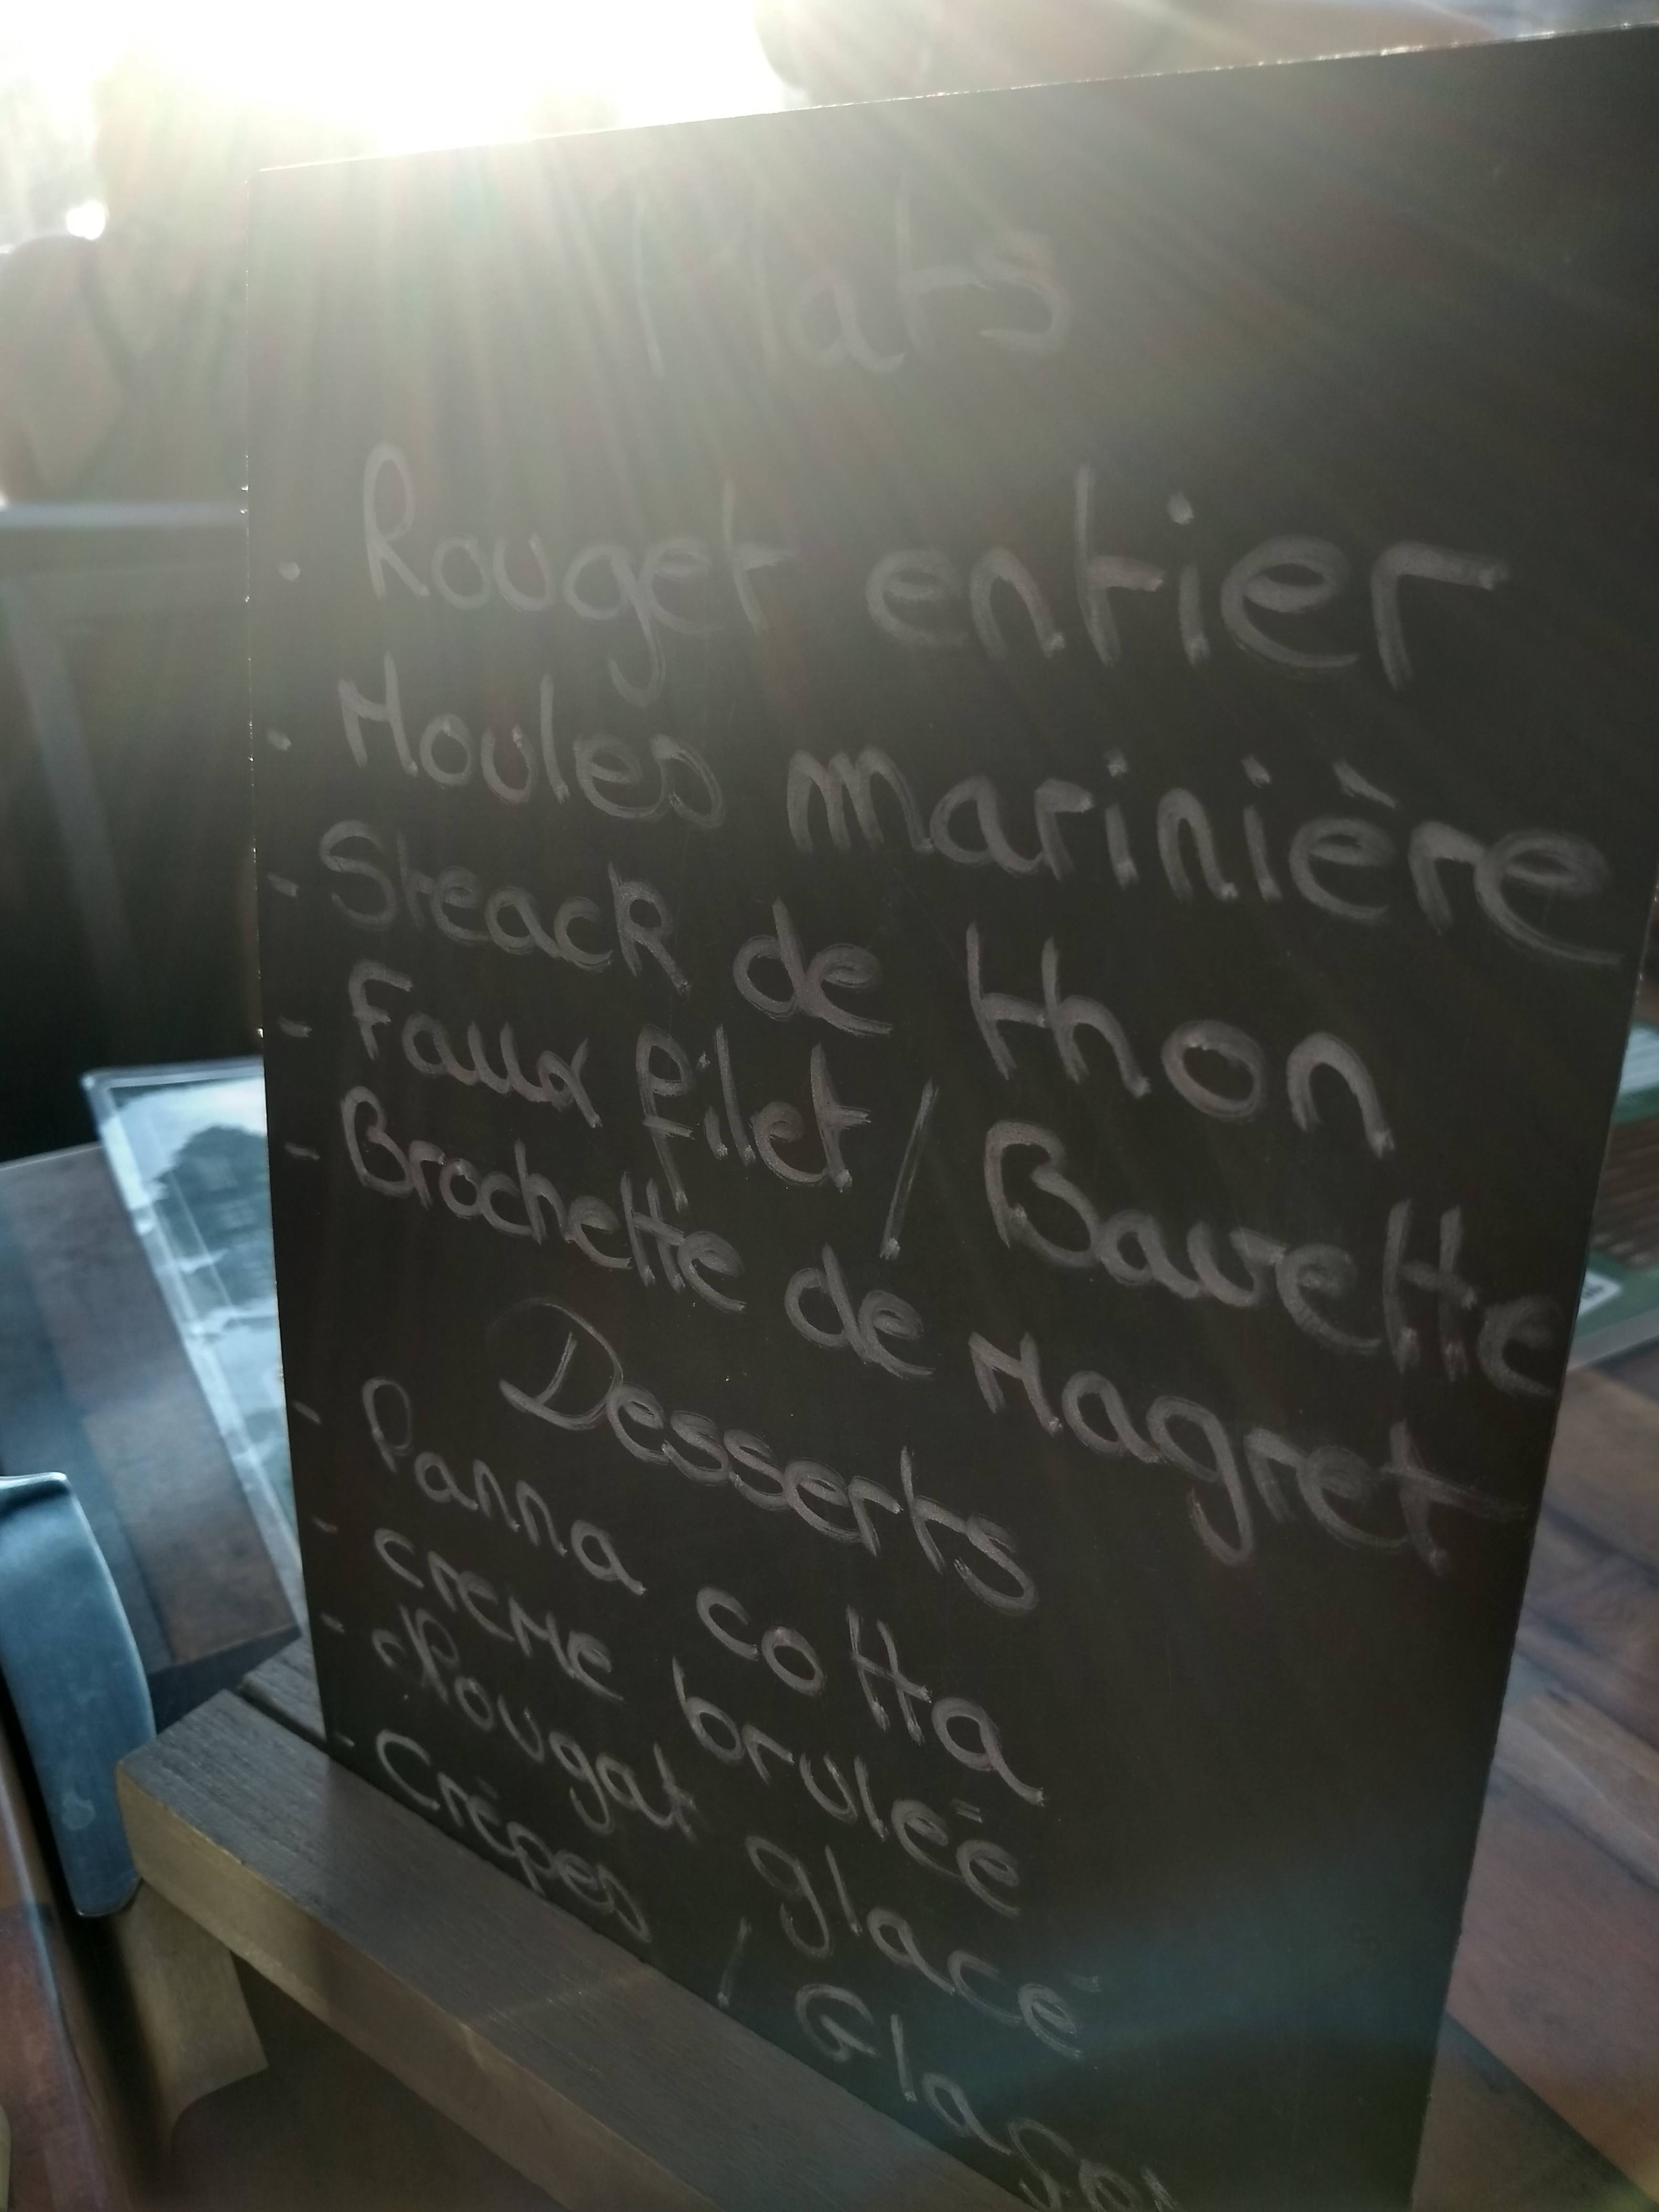 Plats
- Rouget entier
- Moules marinière
- Steack de thon
- Faux filet / Bavette
- Brochette de Magret
Desserts
- Panna cotta
- creme bruleé
- Nougat glacé
- Crêpes /